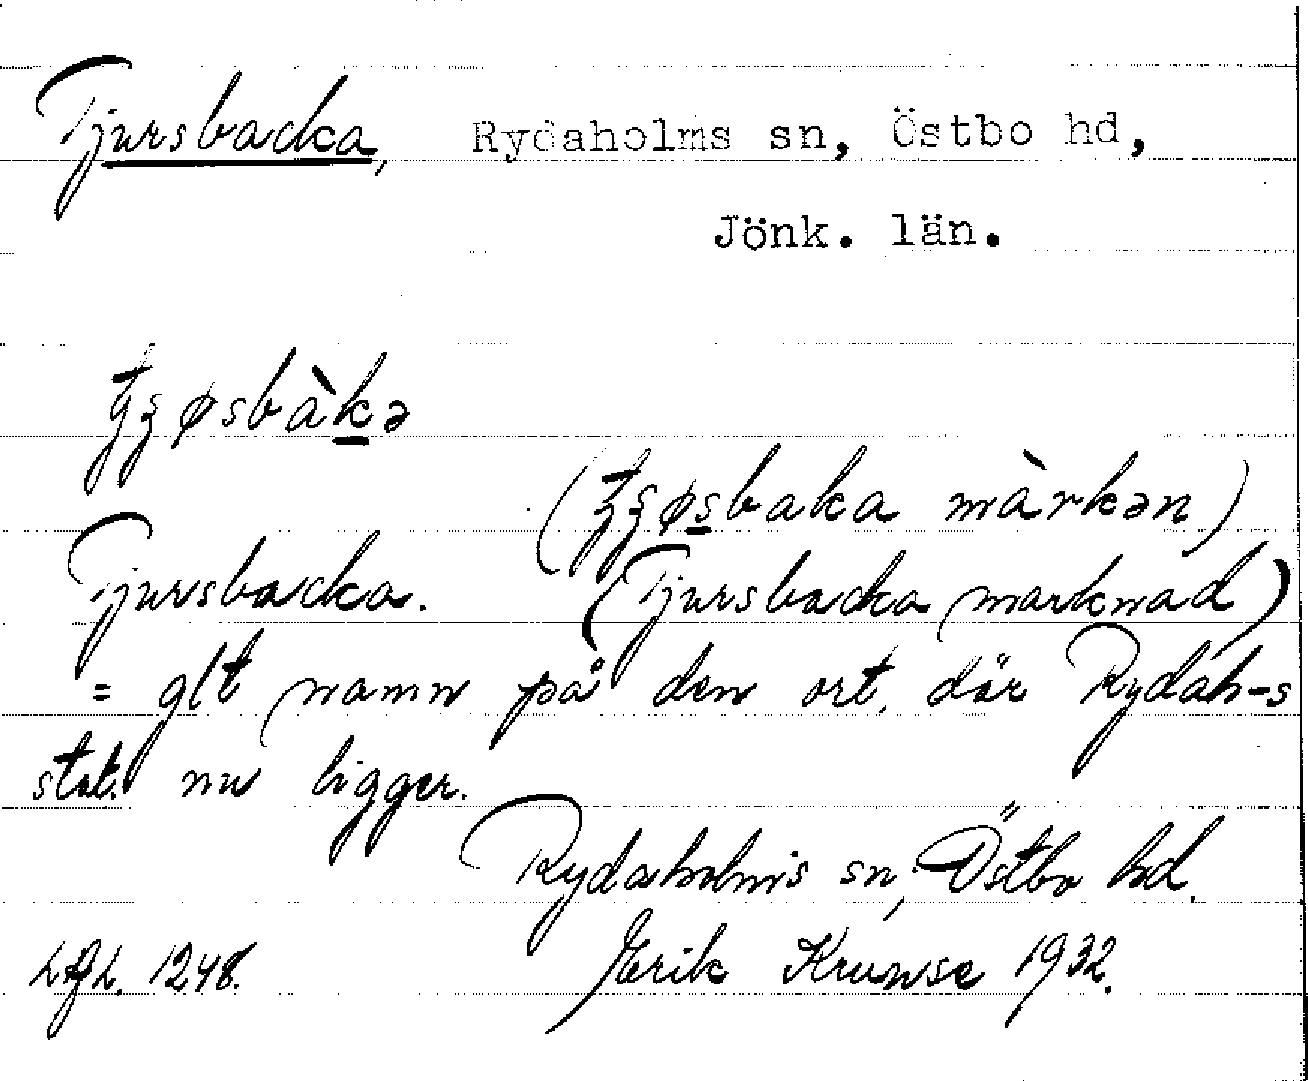 Tjursbacka, Rydaholms sn, Östbo hd,
Jönk. län.
bàkə
màrkən)
Tjursbacka. (Tjursbacka marknad)
= glt namn på den ort, där Rydah-s
stat. nu ligger.
Rydaholms sn, Östbo hd.
1248. Erik Krunse 1932.